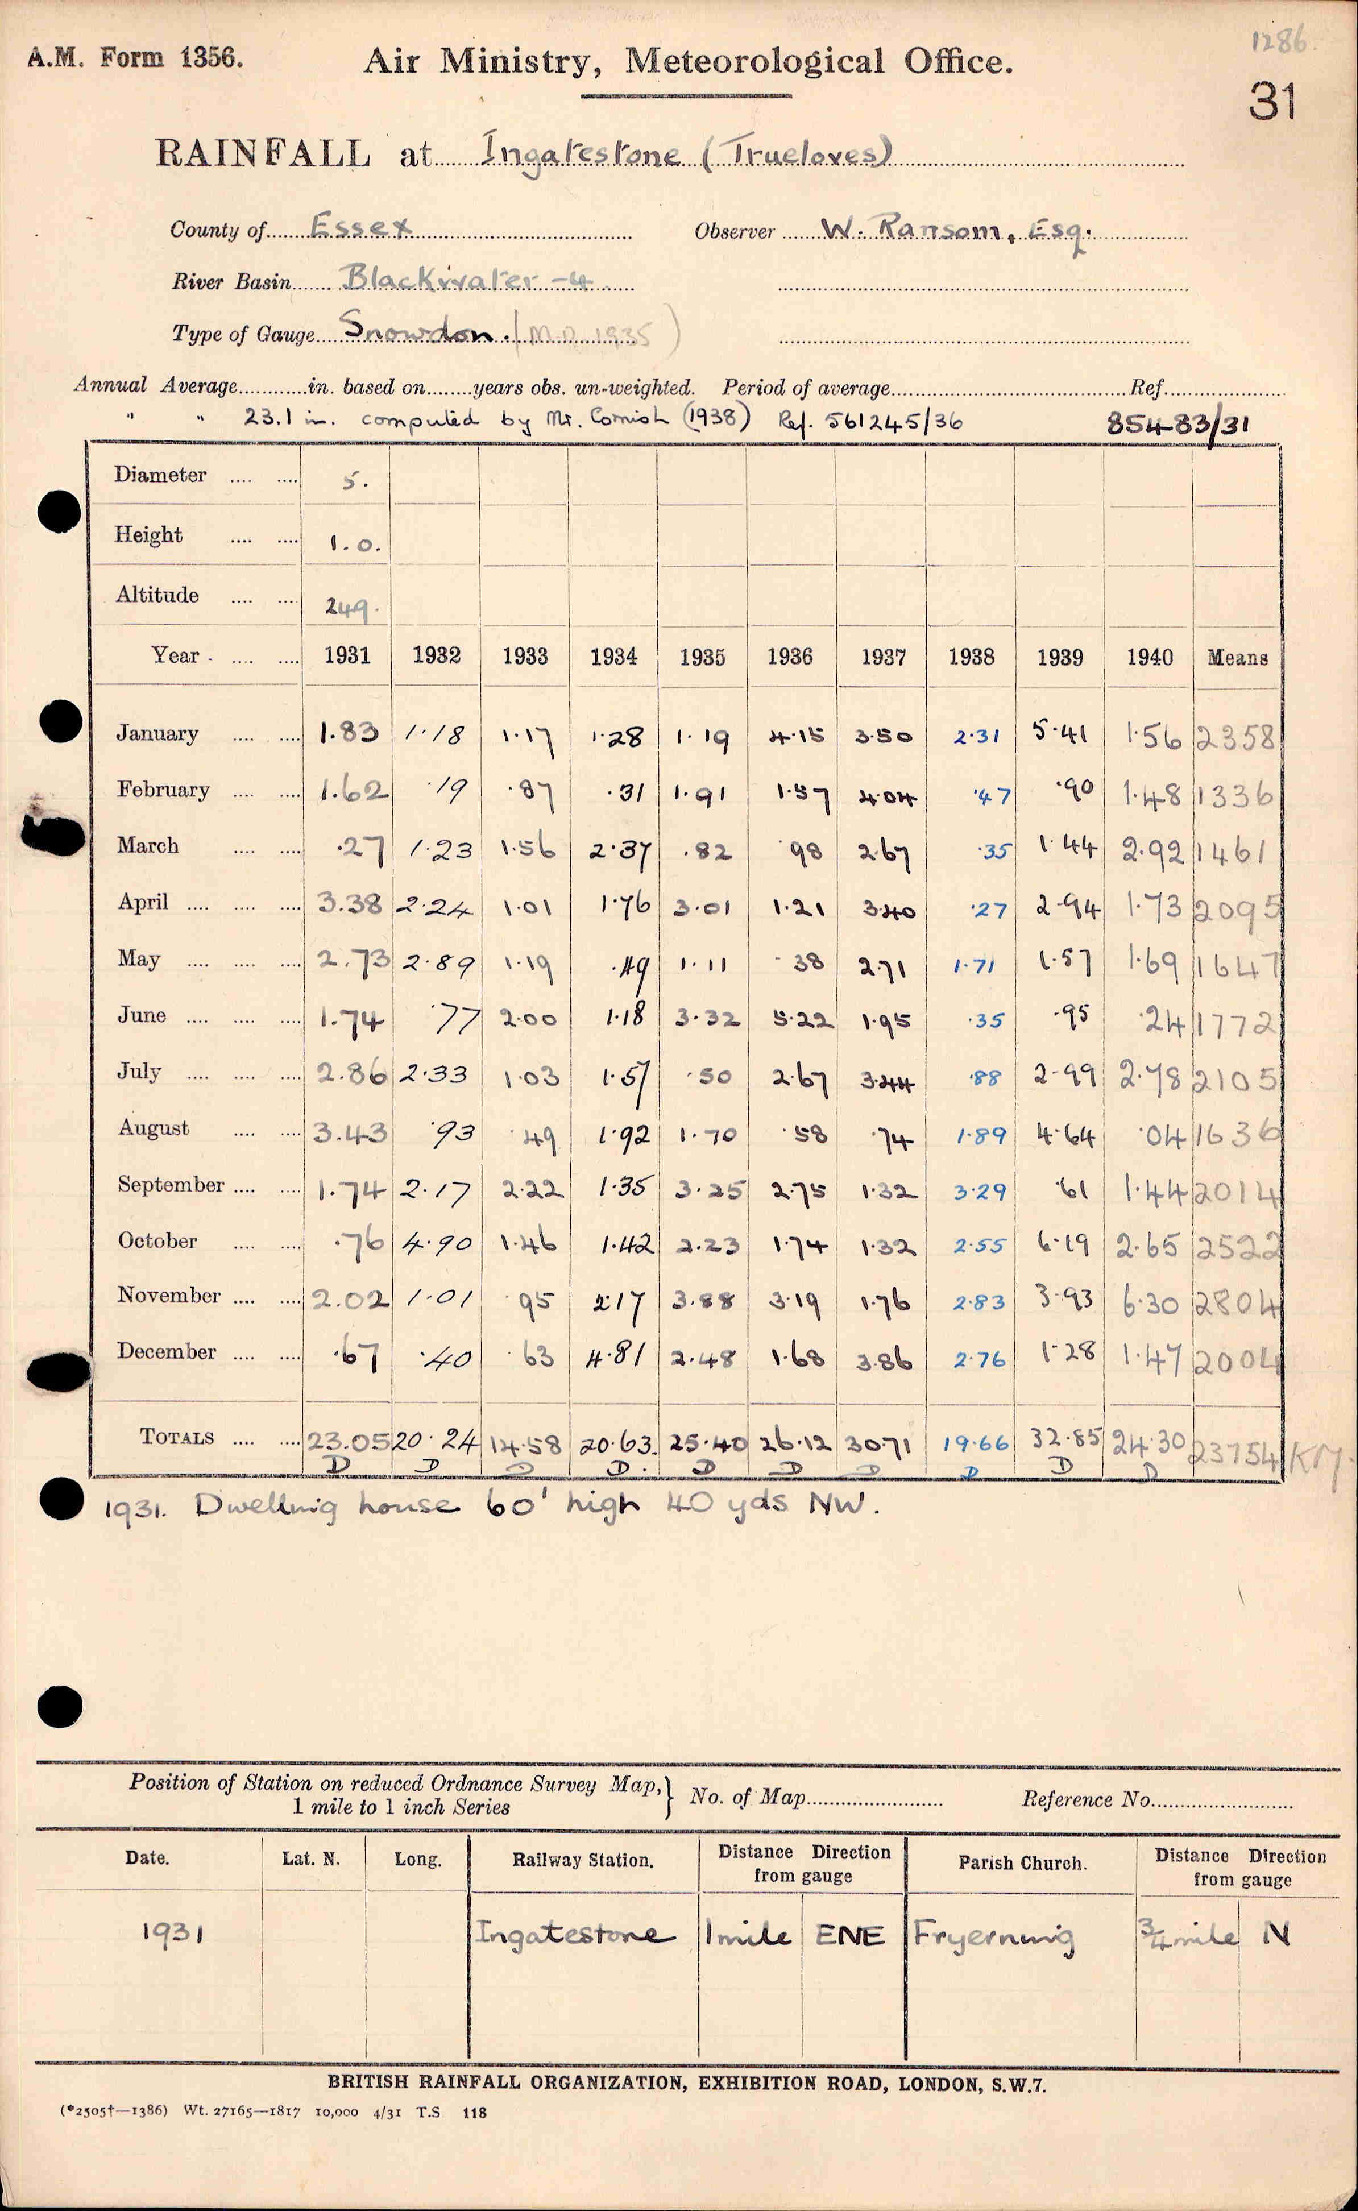 1286.
A.M. Form 1356. Air Ministry, Meteorological Office.
31
RAINFALL at Ingatestone (Trueloves)
County of Essex Observer W. Ransom, Esq.
River Basin Blackwater -4
Type of Gauge Snowdon. (M.O. 1935)
Annual Average............in. based on........years obs. un-weighted. Period of average............ Ref............
" " 23.1 in. computed by Mr. Cornish (1938) Ref. 561245/36 85483/31
Diameter .... .... 5.
Height .... .... 1.0.
Altitude .... .... 249.
Year . .... .... 1931 1932 1933 1934 1935 1936 1937 1938 1939 1940 Means
January .... .... 1.83 1.18 1.17 1.28 1.19 4.15 3.50 2.31 5.41 1.56 2358
February .... .... 1.62 .19 .87 .31 1.91 1.57 4.04 .47 .90 1.48 1336
March .... .... .27 1.23 1.56 2.37 .82 .98 2.67 .35 1.44 2.92 1461
April .... .... .... 3.38 2.24 1.01 1.76 3.01 1.21 3.40 .27 2.94 1.73 2095
May .... .... .... 2.73 2.89 1.19 .49 1.11 .38 2.71 1.71 1.57 1.69 1647
June .... .... .... 1.74 .77 2.00 1.18 3.32 5.22 1.95 .35 .95 .24 1772
July .... .... .... 2.86 2.33 1.03 1.57 .50 2.67 3.44 .88 2.99 2.78 2105
August .... .... 3.43 .93 .49 1.92 1.70 .58 .74 1.89 4.64 .04 1636
September .... .... 1.74 2.17 2.22 1.35 3.25 2.75 1.32 3.29 .61 1.44 2014
October .... .... .76 4.90 1.46 1.42 2.23 1.74 1.32 2.55 6.19 2.65 2522
November .... .... 2.02 1.01 .95 2.17 3.88 3.19 1.76 2.83 3.93 6.30 2804
December .... .... .67 .40 .63 4.81 2.48 1.68 3.86 2.76 1.28 1.47 2004
TOTALS .... .... 23.05 20.24 14.58 20.63 25.40 26.12 30.71 19.66 32.85 24.30 23754 KM.
D D D D. D D D D D D
1931. Dwelling house 60' high 40 yds NW.
Position of Station on reduced Ordnance Survey Map, 1 mile to 1 inch Series } No. of Map............ Reference No............
Date. Lat. N. Long. Railway Station. Distance Direction from gauge Parish Church. Distance Direction from gauge
1931 Ingatestone 1 mile ENE Fryerning 3/4 mile N
BRITISH RAINFALL ORGANIZATION, EXHIBITION ROAD, LONDON, S.W.7.
(*2505†—1386) Wt. 27165—1817 10,000 4/31 T.S 118